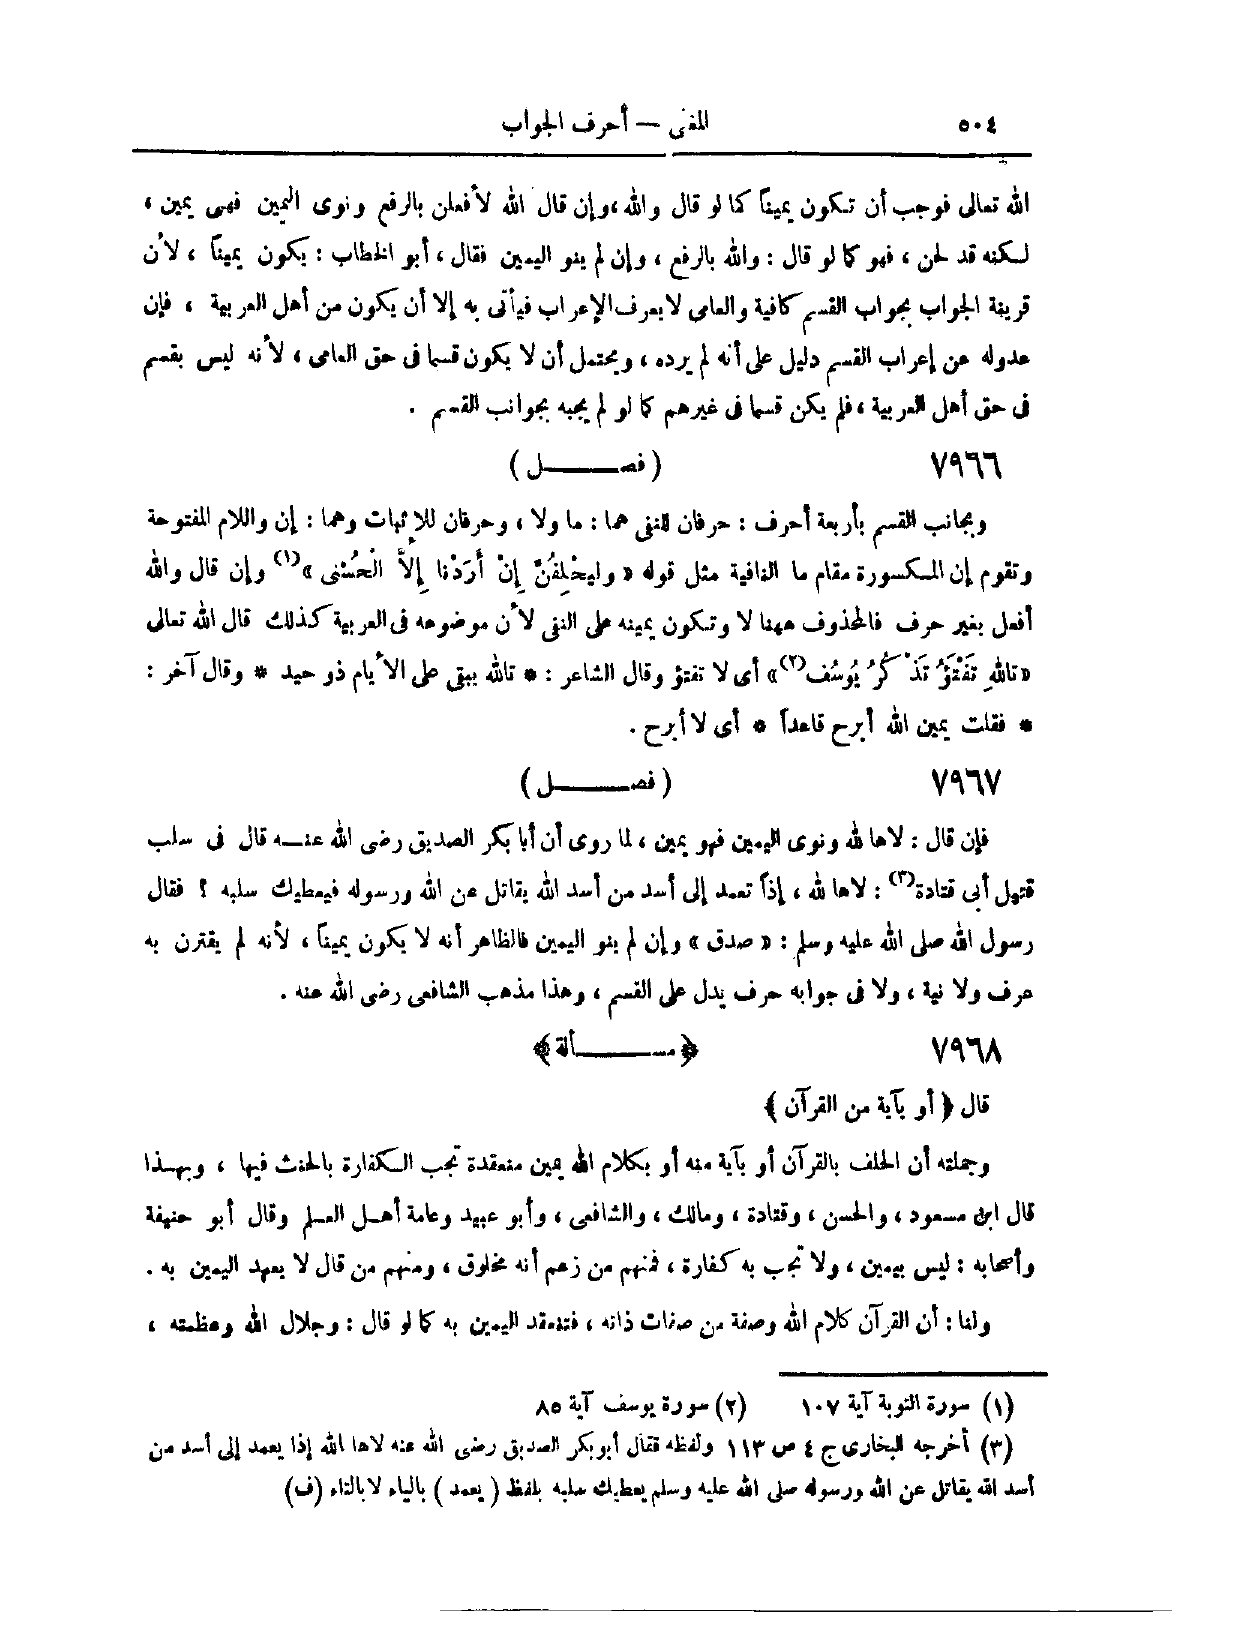 ٥٠٤ المغنى — أحرف الجواب
الله تعالى فوجب أن تكون يميناً كما لو قال والله ، وإن قال الله لأفعلن بالرفع ونوى اليمين فهى يمين ،
لكنه قد لحن ، فهو كما لو قال : والله بالرفع ، وإن لم ينو اليمين فقال ، أبو الخطاب : يكون يميناً ، لأن
قرينة الجواب بجواب القسم كافية والعامى لا يعرف الإعراب فيأتى به إلا أن يكون من أهل العربية ، فإن
عدوله عن إعراب القسم دليل على أنه لم يرده ، ويحتمل أن لا يكون قسما فى حق العامى ، لأنه ليس بقسم
فى حق أهل العربية ، فلم يكن قسما فى غيرهم كما لو لم يجبه بجوانب القسم .
٧٩٦٦ ( فصــــل )
ويجانب القسم بأربعة أحرف : حرفان للنفى هما : ما ولا ، وحرفان للإثبات وهما : إن واللام المفتوحة
وتقوم إن المكسورة مقام ما النافية مثل قوله « وليَحْلِفُنَّ إِنْ أَرَدْنَا إِلاَّ الْحُسْنى »(١) وإن قال والله
أفعل بغير حرف فالمحذوف ههنا لا وتكون يمينه على النفى لأن موضوعه فى العربية كذلك قال الله تعالى
«تاللهِ تَفْتَؤُ تَذْكُرُ يُوسُف(٢)» أى لا تفتؤ وقال الشاعر : * تالله يبقى على الأيام ذو حيد * وقال آخر :
* فقلت يمين الله أبرح قاعداً * أى لا أبرح .
٧٩٦٧ ( فصــــل )
فإن قال : لاها لله ونوى اليمين فهو يمين ، لما روى أن أبا بكر الصديق رضى الله عنــه قال فى سلب
قتيل أبى قتادة(٣) : لاها لله ، إذاً تعمد إلى أسد من أسد الله يقاتل عن الله ورسوله فيعطيك سلبه ؟ فقال
رسول الله صلى الله عليه وسلم : « صدق » وإن لم ينو اليمين فالظاهر أنه لا يكون يميناً ، لأنه لم يقترن به
عرف ولا نية ، ولا فى جوابه حرف يدل على القسم ، وهذا مذهب الشافعى رضى الله عنه .
٧٩٦٨ ﴿ مســـــألة ﴾
قال ﴿ أو بآية من القرآن ﴾
وجملته أن الحلف بالقرآن أو بآية منه أو بكلام الله يمين منعقدة تجب الكفارة بالحنث فيها ، وبهــذا
قال ابن مسعود ، والحسن ، وقتادة ، ومالك ، والشافعى ، وأبو عبيد وعامة أهــل العــلم وقال أبو حنيفة
وأصحابه : ليس بيمين ، ولا تجب به كفارة ، فمنهم من زعم أنه مخلوق ، ومنهم من قال لا يعهد اليمين به .
ولنا : أن القرآن كلام الله وصفة من صفات ذاته ، فتنعقد اليمين به كما لو قال : وجلال الله وعظمته ،
(١) سورة التوبة آية ١٠٧ (٢) سورة يوسف آية ٨٥
(٣) أخرجه البخارى ج ٤ ص ١١٣ ولفظه فقال أبو بكر الصديق رضى الله عنه لاها الله إذا يعمد إلى أسد من
أسد الله يقاتل عن الله ورسوله صلى الله عليه وسلم يعطيك سلبه بلفظ ( يعمد ) بالياء لا بالتاء (ف)